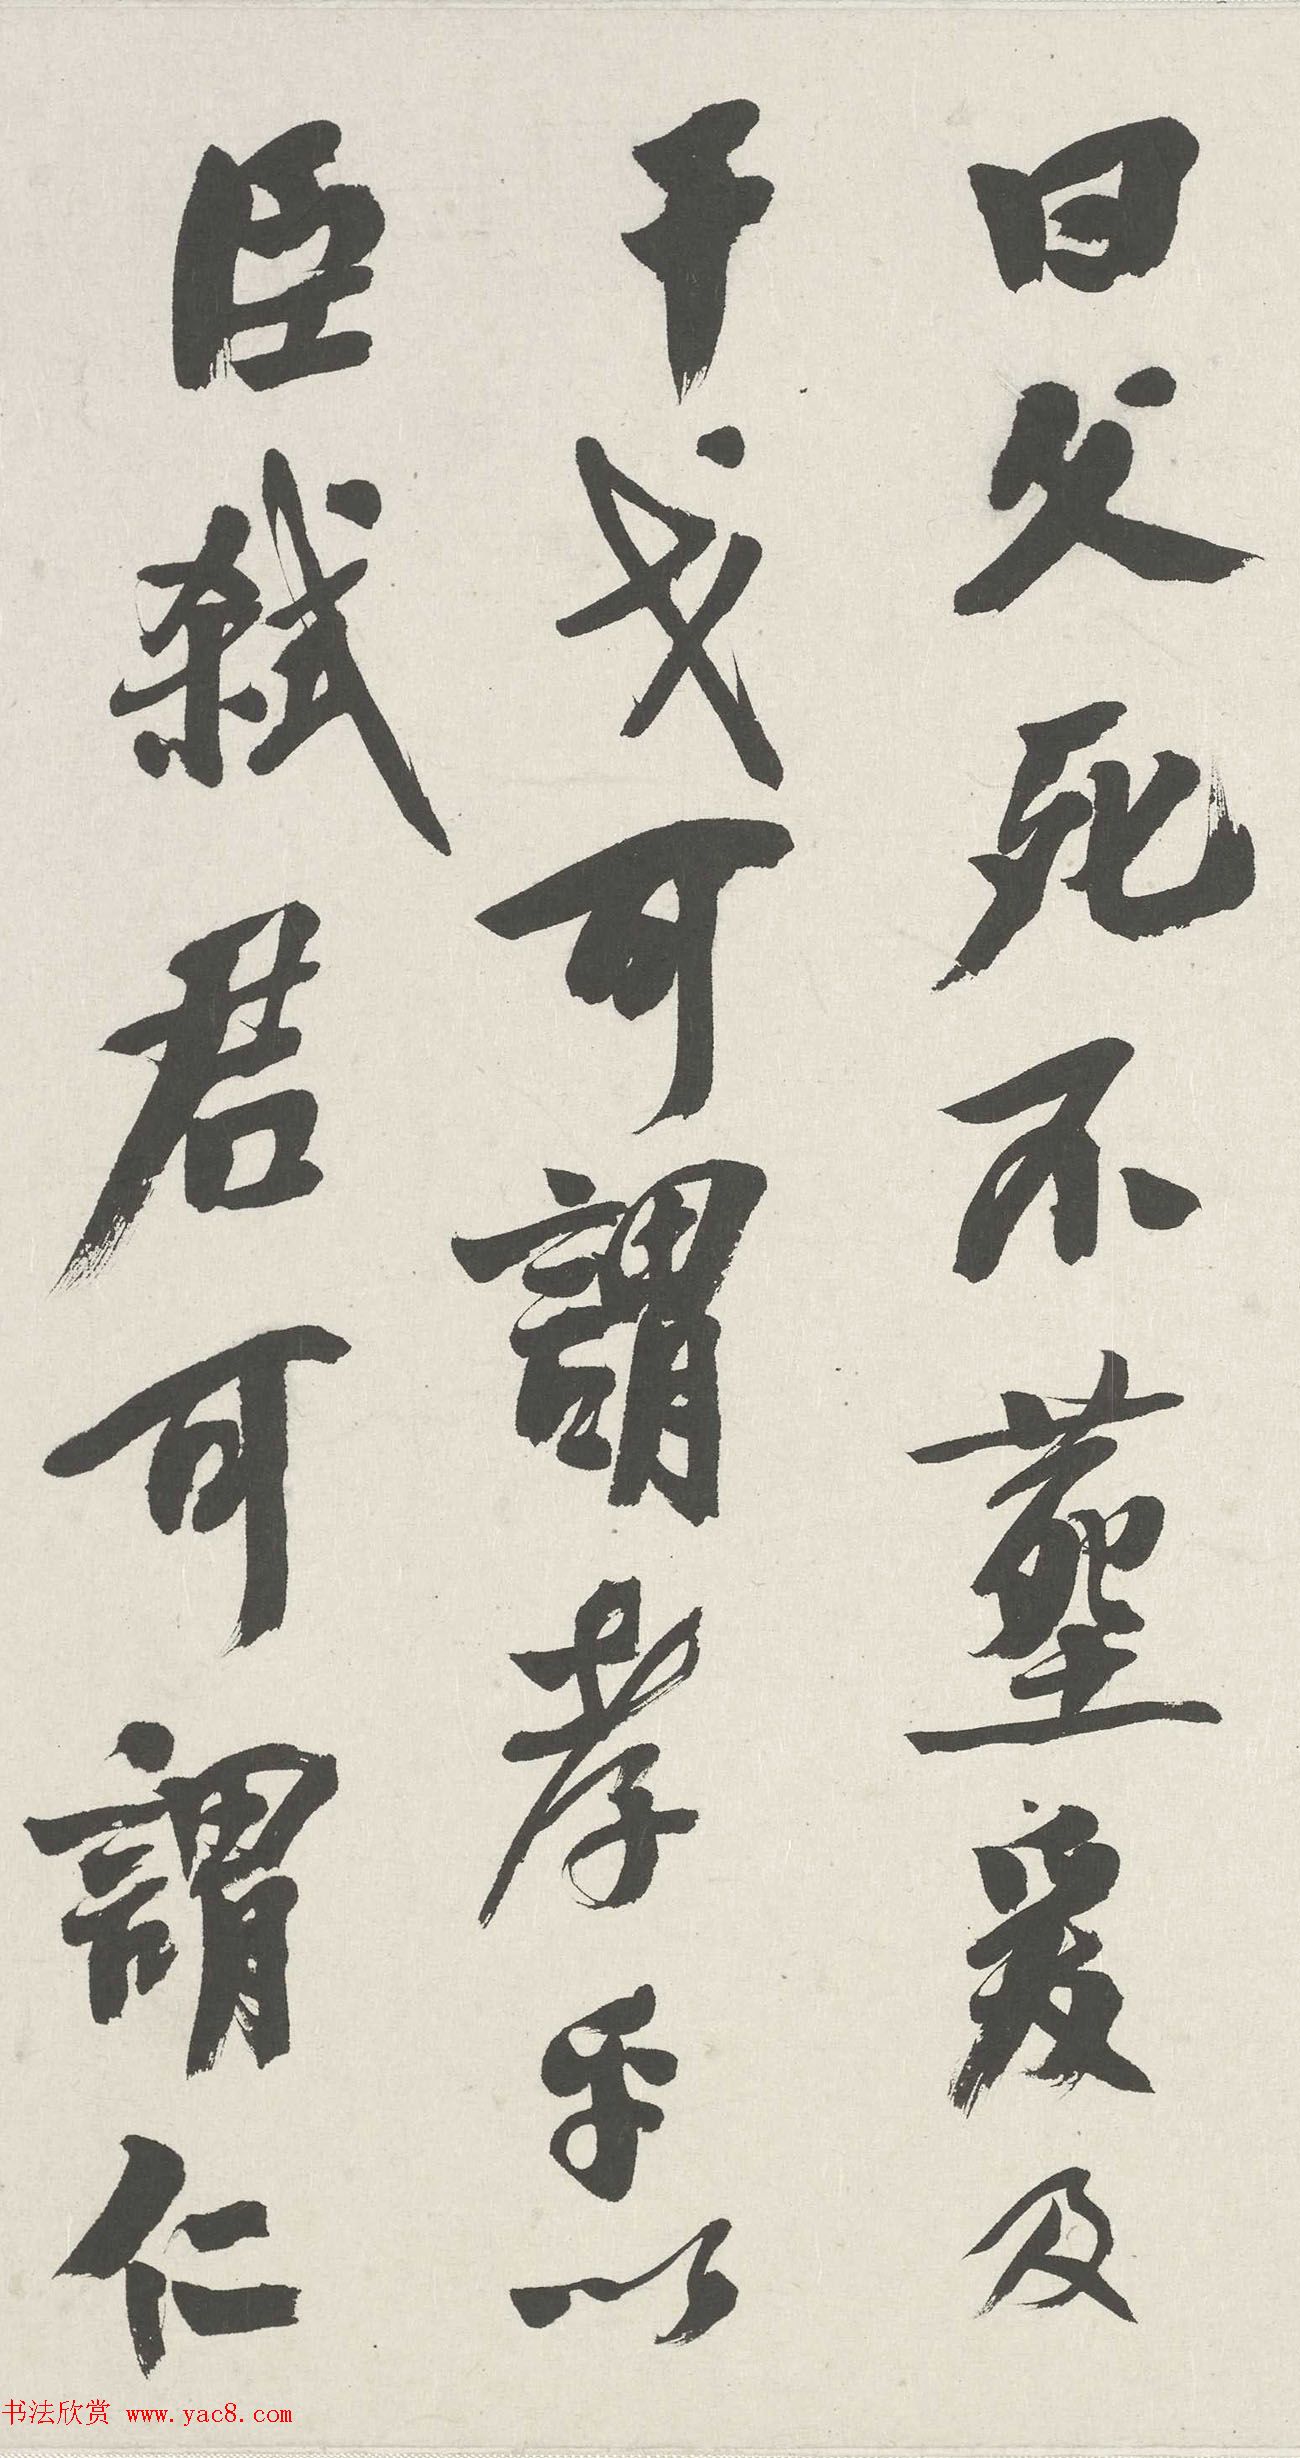 曰父死不塟爰及
干戈可謂孝乎以
臣弑君可謂仁
书法欣赏 www.yac8.com